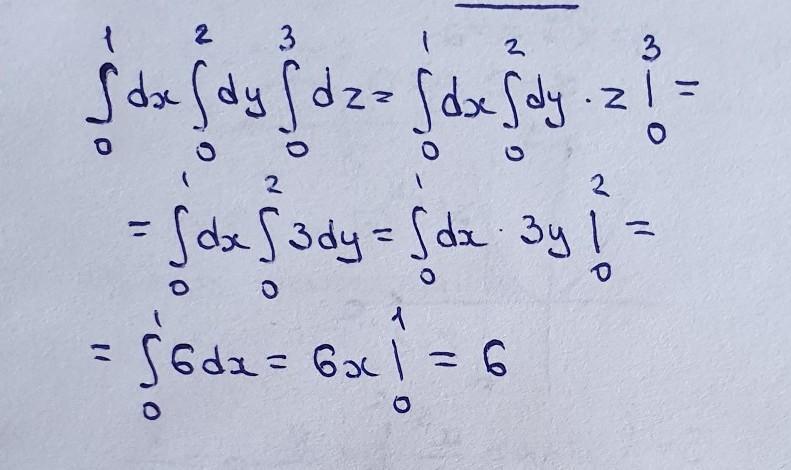 ∫₀¹ dx ∫₀² dy ∫₀³ dz = ∫₀¹ dx ∫₀² dy · z |₀³ =
= ∫₀¹ dx ∫₀² 3dy = ∫₀¹ dx · 3y |₀² =
= ∫₀¹ 6dx = 6x |₀¹ = 6